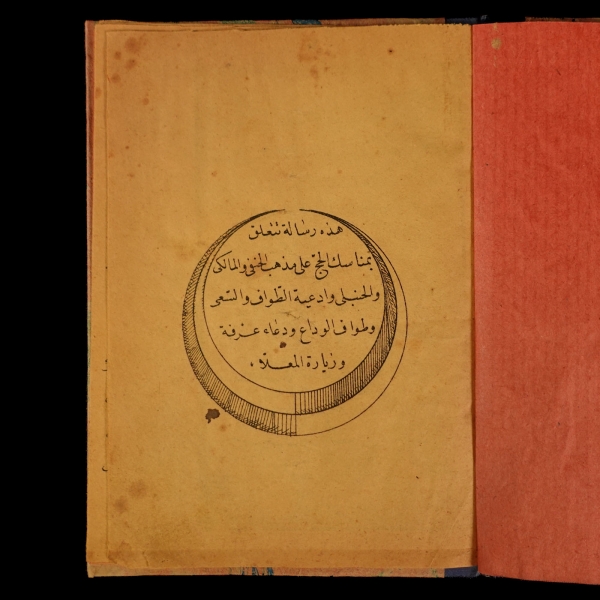 هذه رسالة تتعلق
بمناسك الحج على مذهب الحنفي والمالكي
والحنبلي وادعية الطواف والسعى
وطواف الوداع ودعاء عرفة
وزيارة المعلاء